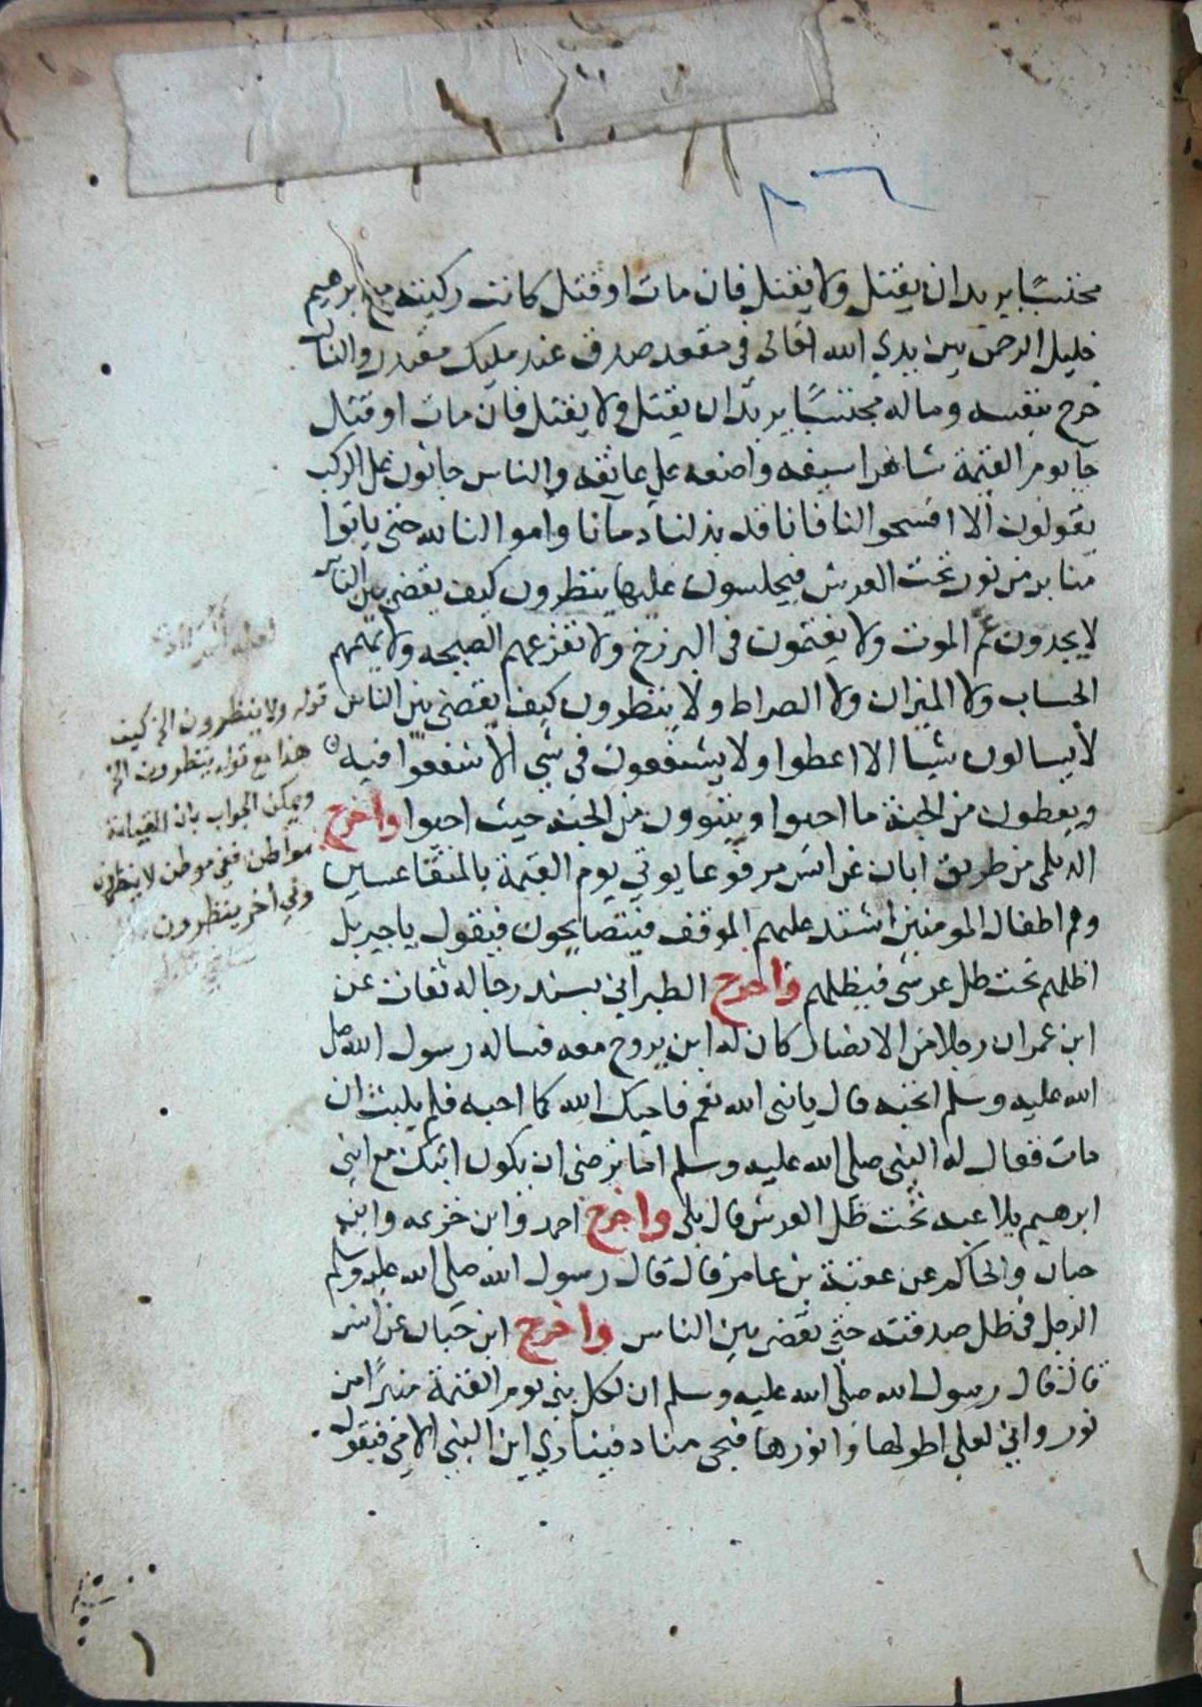 محتسبًا يريد ان يقتل ولا يقتل فان مات او قتل كانت ركبته مع ابرهيم
خليل الرحمن بين يدي الله تعالى في مقعد صدق عند مليك مقتدر والثالث
خرج بنفسه وماله محتسبًا يريد ان يقتل ولا يقتل فان مات او قتل
جا يوم القيمة شاهرا سيفه واضعه على عاتقه والناس جاثون على الركب
يقولون ألا افسحوا لنا فانا قد بذلنا دمآنا واموالنا لله حتى ياتوا
منابر من نور تحت العرش فيجلسون عليها ينظرون كيف يقضى بين الناس
لا يجدون غم الموت ولا يغتمون في البرزخ ولا تفزعهم الصيحه ولا يهمهم
الحساب ولا الميزان ولا الصراط ولا ينظرون كيف يقضى بين الناس
لا يسالون شيا الا اعطوا ولا يشفعون في شي الا شفعوا فيه
ويعطون من الجنة ما احبوا ويتبوون من الجنة حيث احبوا واخرج
الديلمى من طريق ابان عن انس مرفوعا يوتي يوم القيمة بالمتقاعسين
وهم اطفال المومنين اشتد عليهم الموقف فيتصايحون فيقول يا جبريل
اظلهم تحت ظل عرشى فيظلهم واخرج الطبراني بسند رجاله ثقات عن
ابن عمر ان رجلا من الانصار كان له ابن يروح معه فساله رسول الله صلى
الله عليه وسلم اتحبه قال يا نبى الله نعم فاحبك الله كما احبه فلم يلبث ان
مات فقال له النبى صلى الله عليه وسلم اما ترضى ان يكون ابنك مع ابني
ابرهيم يلاعبه تحت ظل العرش قال بلى واخرج احمد وابن خزيمه وابن
حبان والحاكم عن عقبة بن عامر قال قال رسول الله صلى الله عليه وسلم
الرجل في ظل صدقته حتى يقضى بين الناس واخرج ابن حبان عن انس
قال قال رسول الله صلى الله عليه وسلم ان لكل نبى يوم القيمة منبرًا من
نور واني لعلى اطولها وانورها فيجى مناد فينادي اين النبى الامي فيقول
قوله ولا ينظرون الخ كيف
هذا مع قوله ينظرون الخ
ويمكن الجواب بان القيامة
مواطن ففي موطن لا ينظرون
وفي اخر ينظرون